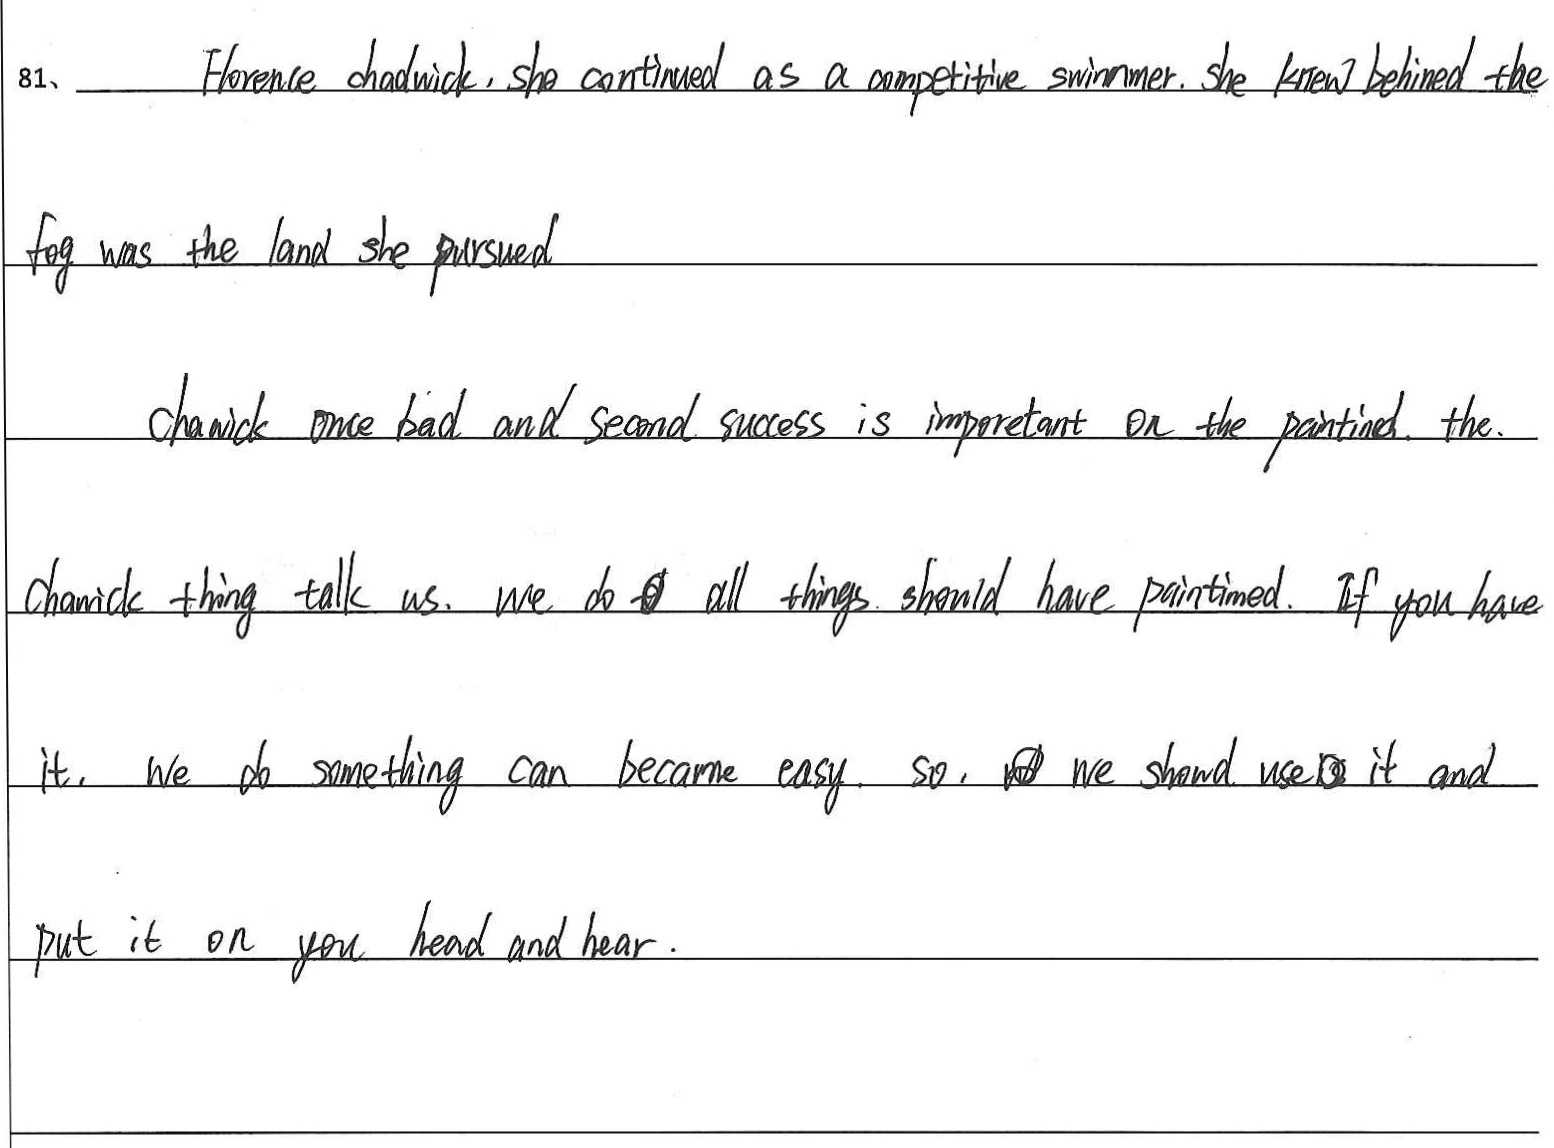 81、 Florence chadwick, she continued as a competitive swimmer. she knew behined the
fog was the land she pursued
Chawick once bad and second success is imporetant on the paintined. the.
chanick thing talk us. we do all things should have paintimed. If you have
it. We do something can became easy. so, we shoud use it and
put it on you head and hear.